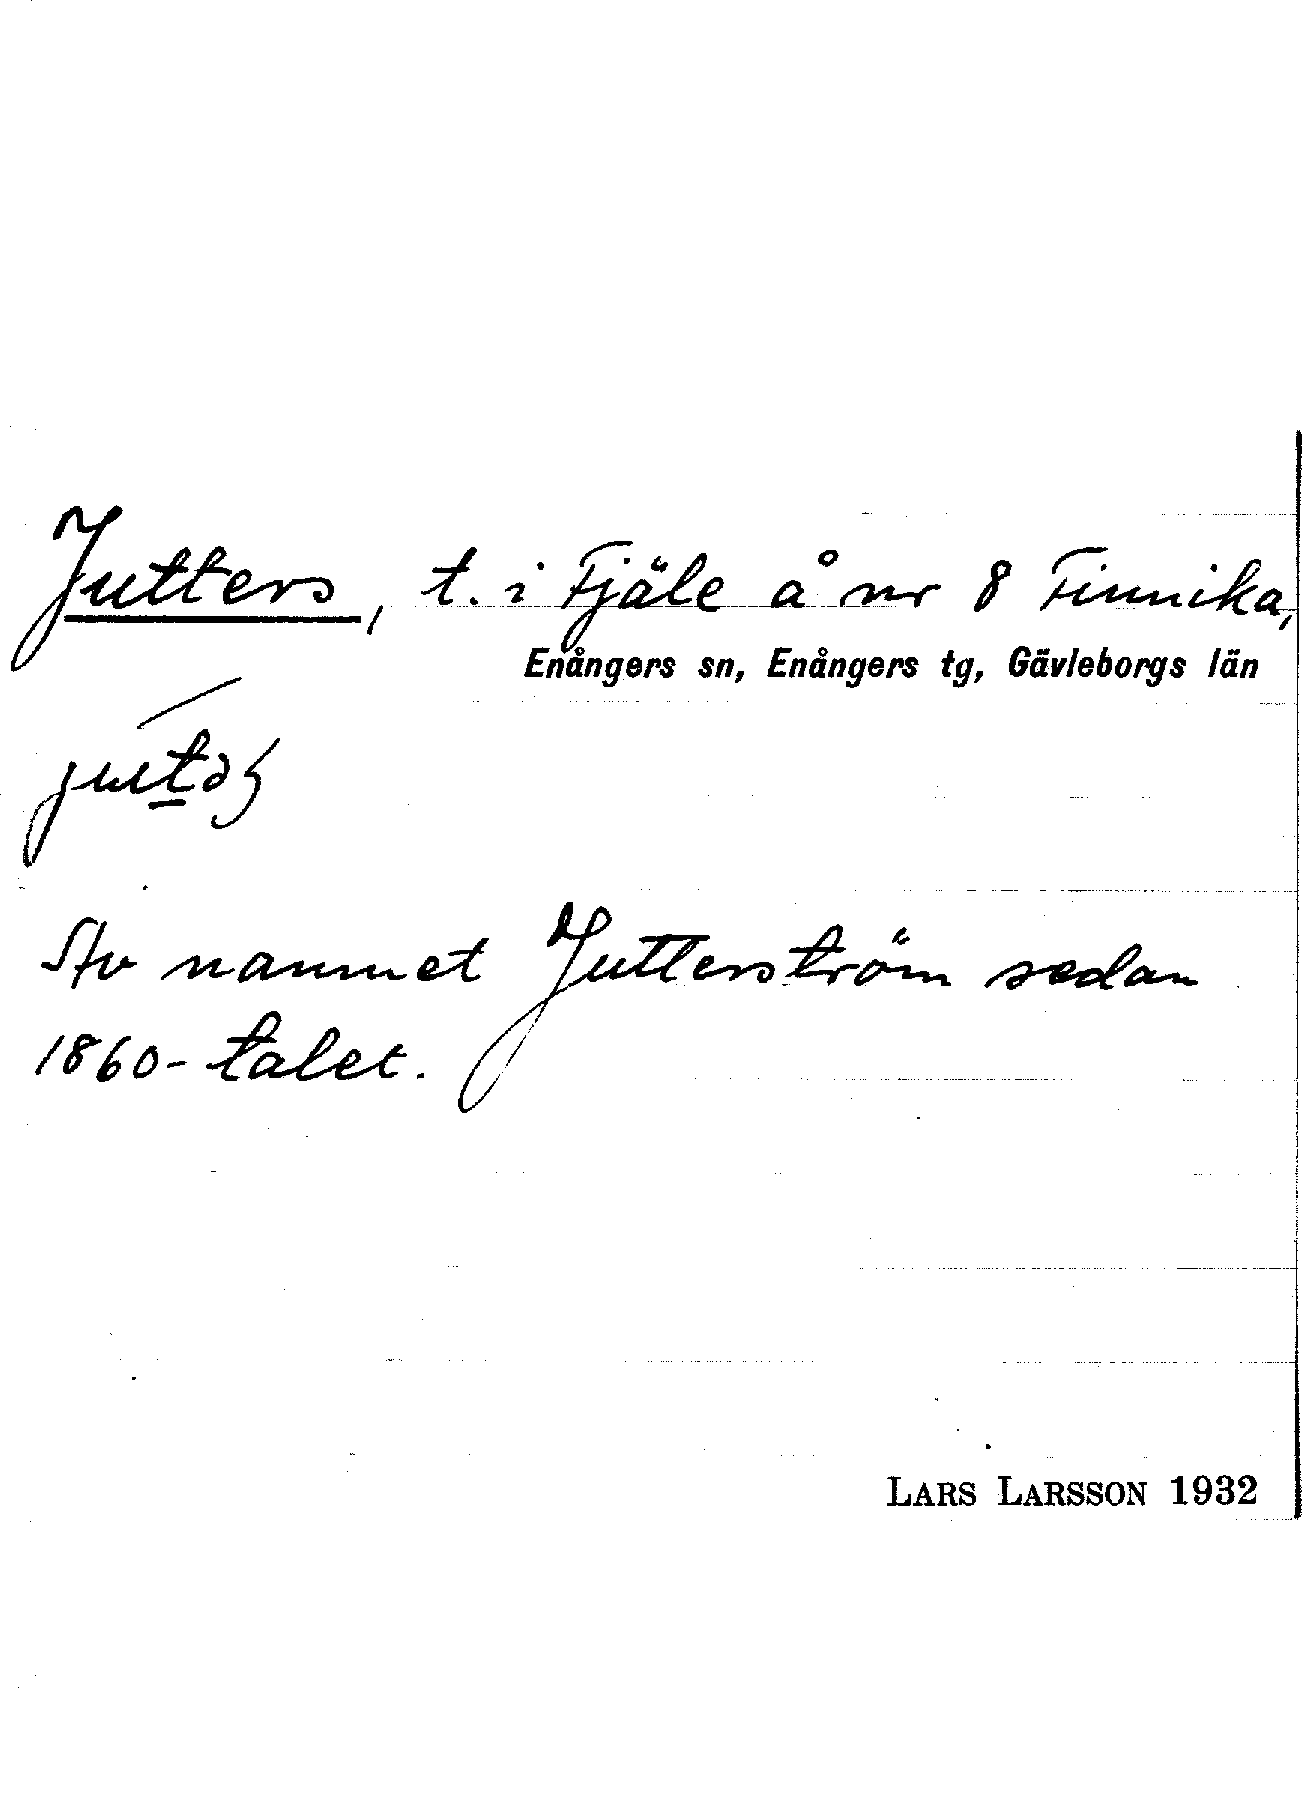 Jutters, t. i Fjäle å nr 8 Finnika,
Enångers sn, Enångers tg, Gävleborgs län
Av namnet Jutterström sedan
1860-talet.
LARS LARSSON 1932